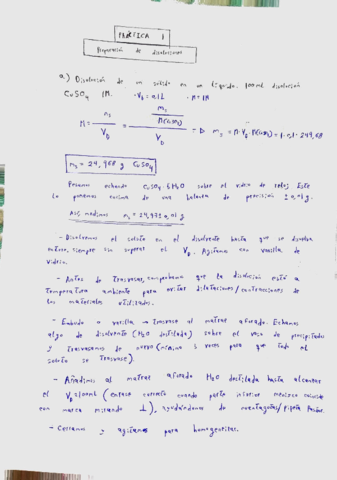 PRÁCTICA 1
Preparación de disoluciones
a) Disolución de un sólido en un líquido. 100ml disolución
CuSO4 1M. · VD = 0,1L · M = 1M
M = ns / VD = ms / M(CuSO4) / VD => ms = M · VD · M(CuSO4) = 1 · 0,1 · 249,68
ms = 24,968 g CuSO4
Pesamos echando CuSO4 · 5H2O sobre el vidrio de reloj. Este
lo ponemos encima de una balanza de precisión ± 0,01 g.
Así, medimos ms = 24,97 ± 0,01 g
- Disolvemos el soluto en el disolvente hasta que se disuelva
entero, siempre sin superar el VD. Agitamos con varilla de
vidrio.
- Antes de trasvasar, comprobamos que la disolución está a
temperatura ambiente para evitar dilataciones/contracciones de
los materiales utilizados.
- Embudo o varilla → trasvase al matraz aforado. Echamos
algo de disolvente (H2O destilada) sobre el vaso de precipitados
y trasvasamos de nuevo (mínimo 3 veces para que todo el
soluto se trasvase).
- Añadimos al matraz aforado H2O destilada hasta alcanzar
el VD = 100ml (enrase correcto cuando parte inferior menisco coincide
con marca mirando ⊥), ayudándonos de cuentagotas/pipeta Pasteur.
- Cerramos y agitamos para homogeneizar.